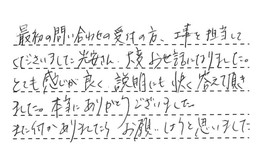 最初の問い合わせの受付の方、工事を担当して
くださいました光安さん、大変お世話になりました。
とても感じが良く、説明にも快く答えて頂き
ました。本当にありがとうございました。
また何かありましたら、お願いしようと思いました